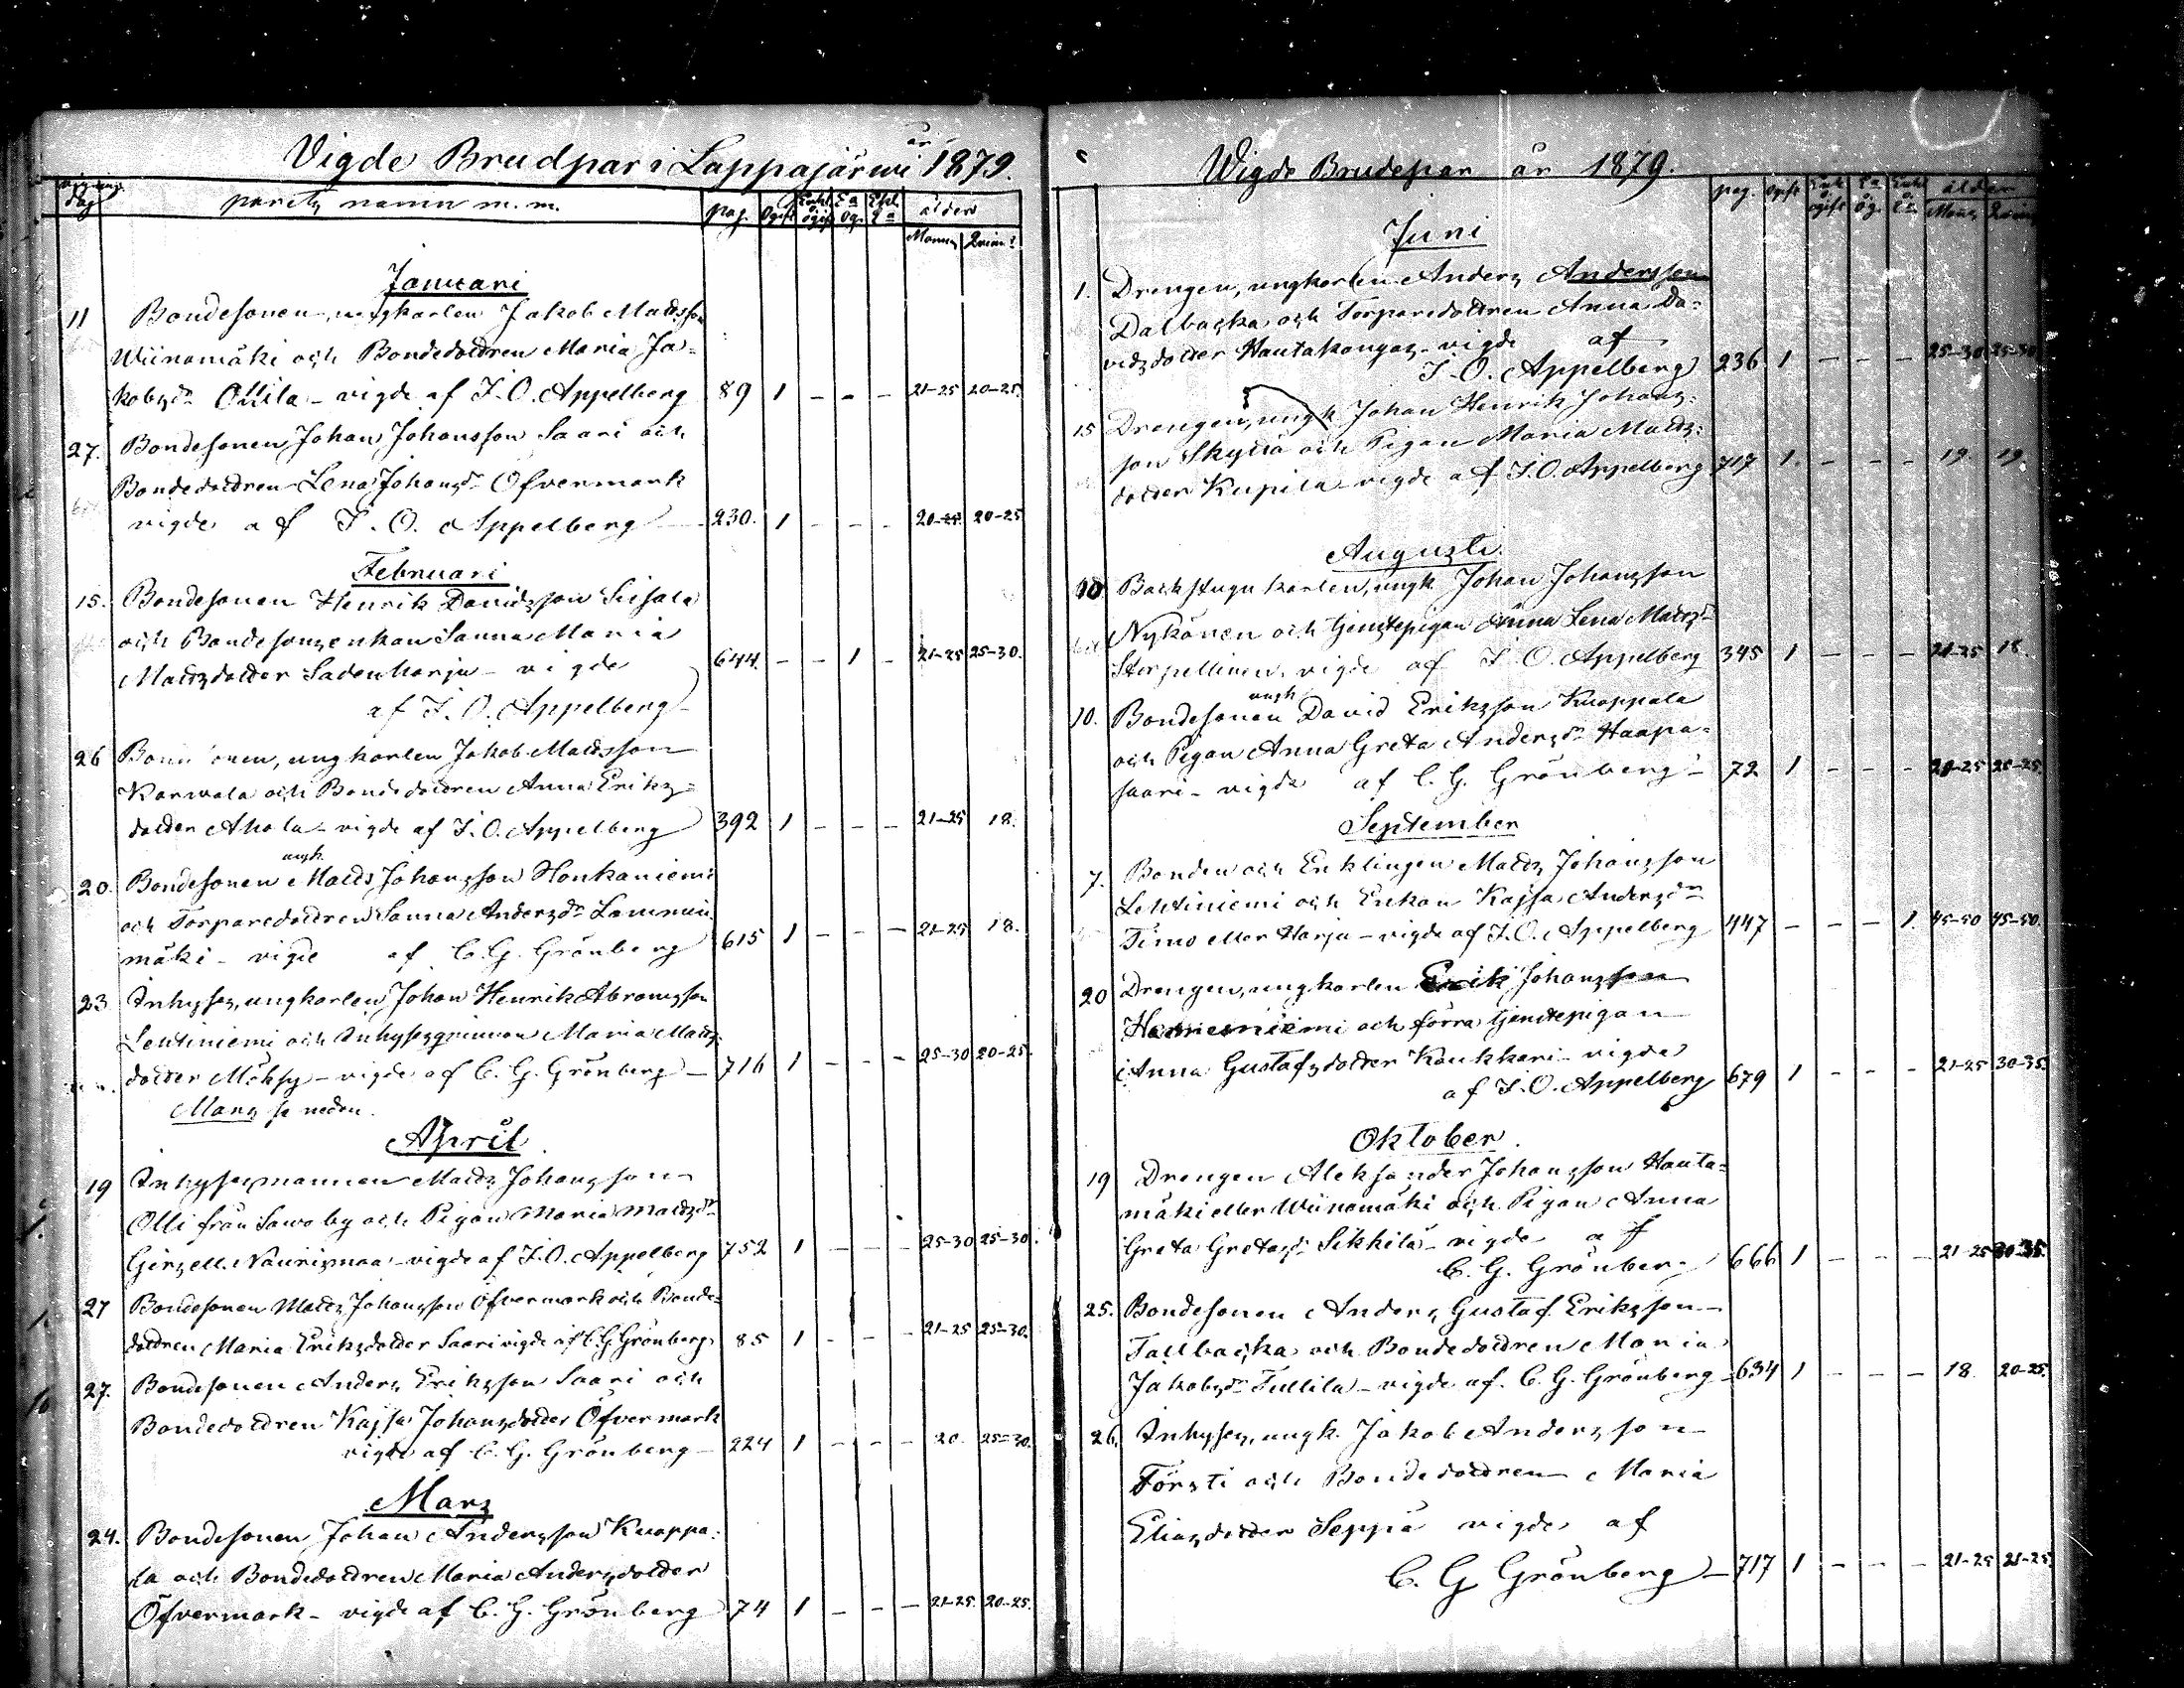 Vigde Brudpar i Lappajärwi år 1879.
dag paretz namn m. m. pag. Ogift Enkl. ogift Ea Og. Ekl. Ea ålder
Mannz Qvinn:s
Januari
11 Bondesonen, ungkarlen Jakob Mattsson
Wiinamäki och Bondedottren Maria Ja-
kobsdr Ollila - vigde af J. O. Appelberg 89 1 - - - 21-25 20-25
27. Bondesonen Johan Johansson Saari och
Bondedottren Lena Johansdr Öfvermark
vigde af J. O. Appelberg 230. 1 - - - 21-25 20-25
Februari
15. Bondesonen Henrik Davidsson
och Bondesonsenkan Sanna Maria
Mattsdotter Sadenharju - vigde 644 - - 1 - 21-25 25-30.
af J. O. Appelberg
26 ungkarlen Jakob Mattsson
Karwala och Bondedottren Anna Eriks-
dotter Ahola - vigde af J. O. Appelberg 392 1 - - - 21-25 18.
ungk.
20. Bondesonen Matts Johansson Honkaniemi
och Torparedottren Sanna Andersdr Lammin
mäki - vigde af C. G. Grönberg 615 1 - - - 21-25 18.
23 Inhyses, ungkarlen Johan Henrik Abramsson
Lehtiniemi och Inhysesqvinnan Maria Matts-
dotter Möksy - vigde af C. G. Grönberg - 716 1 - - - 25-30 20-25.
Mars se nedan.
April
19 Inhysesmannen Matts Johansson
Olli från Sawoby och Pigan Maria Mattsdr
Girs ell. Naurismaa - vigde af J. O. Appelberg 752 1 - - - 25-30 25-30.
27 Bondesonen Matts Johansson Öfvermark och Bonde-
dottren Maria Eriksdotter Saari vigde af C. G. Grönberg 85 1 - - - 21-25 25-30.
27. Bondesonen Anders Eriksson Saari och
Bondedottren Kajsa Johansdotter Öfvermark
vigde af C. G. Grönberg - 224 1 - - - 20. 25-30.
Mars
24. Bondesonen Johan Andersson Knoppa-
la och Bondedottren Maria Andersdotter
Öfvermark - vigde af C. G. Grönberg 74 1 - - - 21-25. 20-25.
Wigde Brudepar år 1879.
pag. Ogift Enk. o. ogift Ea Og. Enkl. o. Ea ålder
Mannz Qvinn
Juni
1. Drengen, ungkarlen Anders Andersson
Dalbacka och Torparedottren Anna Da-
vidsdotter Hautakangas - vigde af
J. O. Appelberg 236 1 - - - 25-30 25-30
15 Drengen, ungk Johan Henrik Johans-
son Skyttä och Pigan Maria Matts-
dotter Kupila - vigde af J. O. Appelberg 717 1. - - - 19. 19.
Augusti.
10 Backstugukarlen, ungk Johan Johansson
Nykänen och tjenstepigan Anna Lena Mattsdr
Storpellinen, vigde af J. O. Appelberg 345 1 - - - 21-25 18.
ungk
10. Bondesonen David Eriksson Knoppala
och Pigan Anna Greta Andersdr Haapa-
saari - vigde af C. G. Grönberg - 72 1 - - - 21-25 20-25.
September
7. Bonden och Enklingen Matts Johansson
Lehtiniemi och Enkan Kajsa Andersdr
Timo eller Harju - vigde af J. O. Appelberg 447 - - - 1. 45-50 45-50.
20 Drengen, ungkarlen Erik Johansson
Haemesniemi och förra tjenstepigan
Anna Gustafsdotter Koukkari - vigde
af J. O. Appelberg 679 1 - - - 21-25 30-35.
Oktober.
19 Drengen Aleksander Johansson Hauta-
mäki eller Wiinamäki och Pigan Anna
Greta Gretasdr Sikkilä - vigde af
C. G. Grönberg 666 1 - - - 21-25 30-35.
25. Bondesonen Anders Gustaf Eriksson
Tallbacka och Bondedottren Maria
Jakobsdr Tullila - vigde af C. G. Grönberg - 634 1 - - - 18. 20-25.
26. Inhyses, ungk. Jakob Andersson
Försti och Bondedottren Maria
Eliasdotter Seppä vigde af
C. G. Grönberg - 717 1 - - - 21-25 21-25.